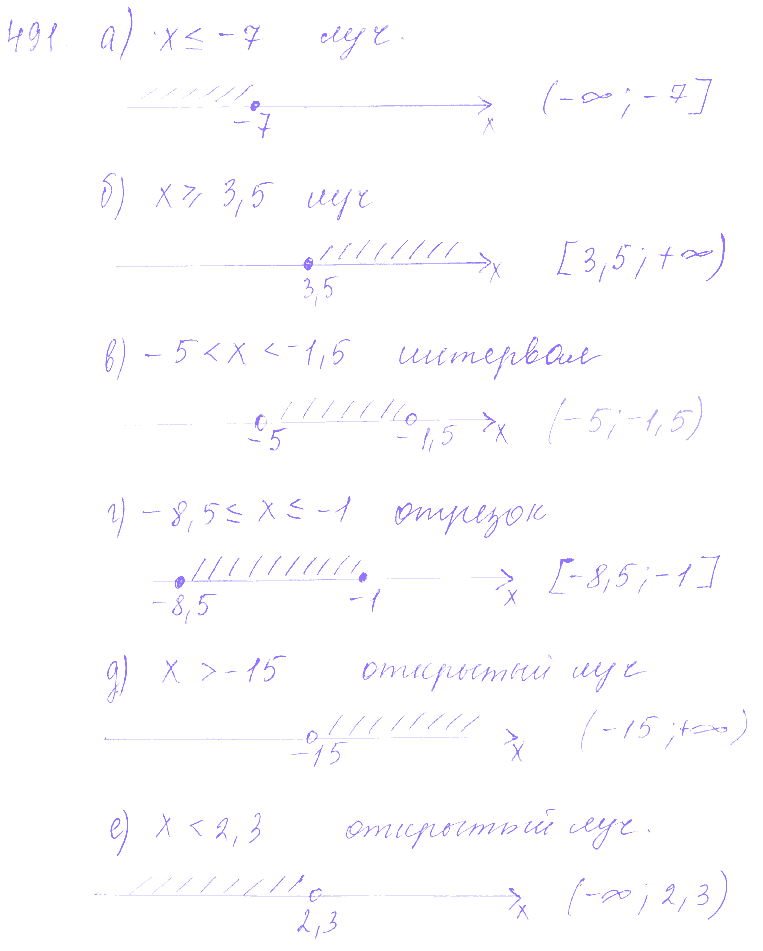 491 а) x ≤ -7 луч.
-7 x (-∞; -7]
б) x ⩾ 3,5 луч
3,5 x [3,5; +∞)
в) -5 < x < -1,5 интервал
-5 -1,5 x (-5; -1,5)
г) -8,5 ≤ x ≤ -1 отрезок
-8,5 -1 x [-8,5; -1]
д) x > -15 открытый луч
-15 x (-15; +∞)
е) x < 2,3 открытый луч.
2,3 x (-∞; 2,3)